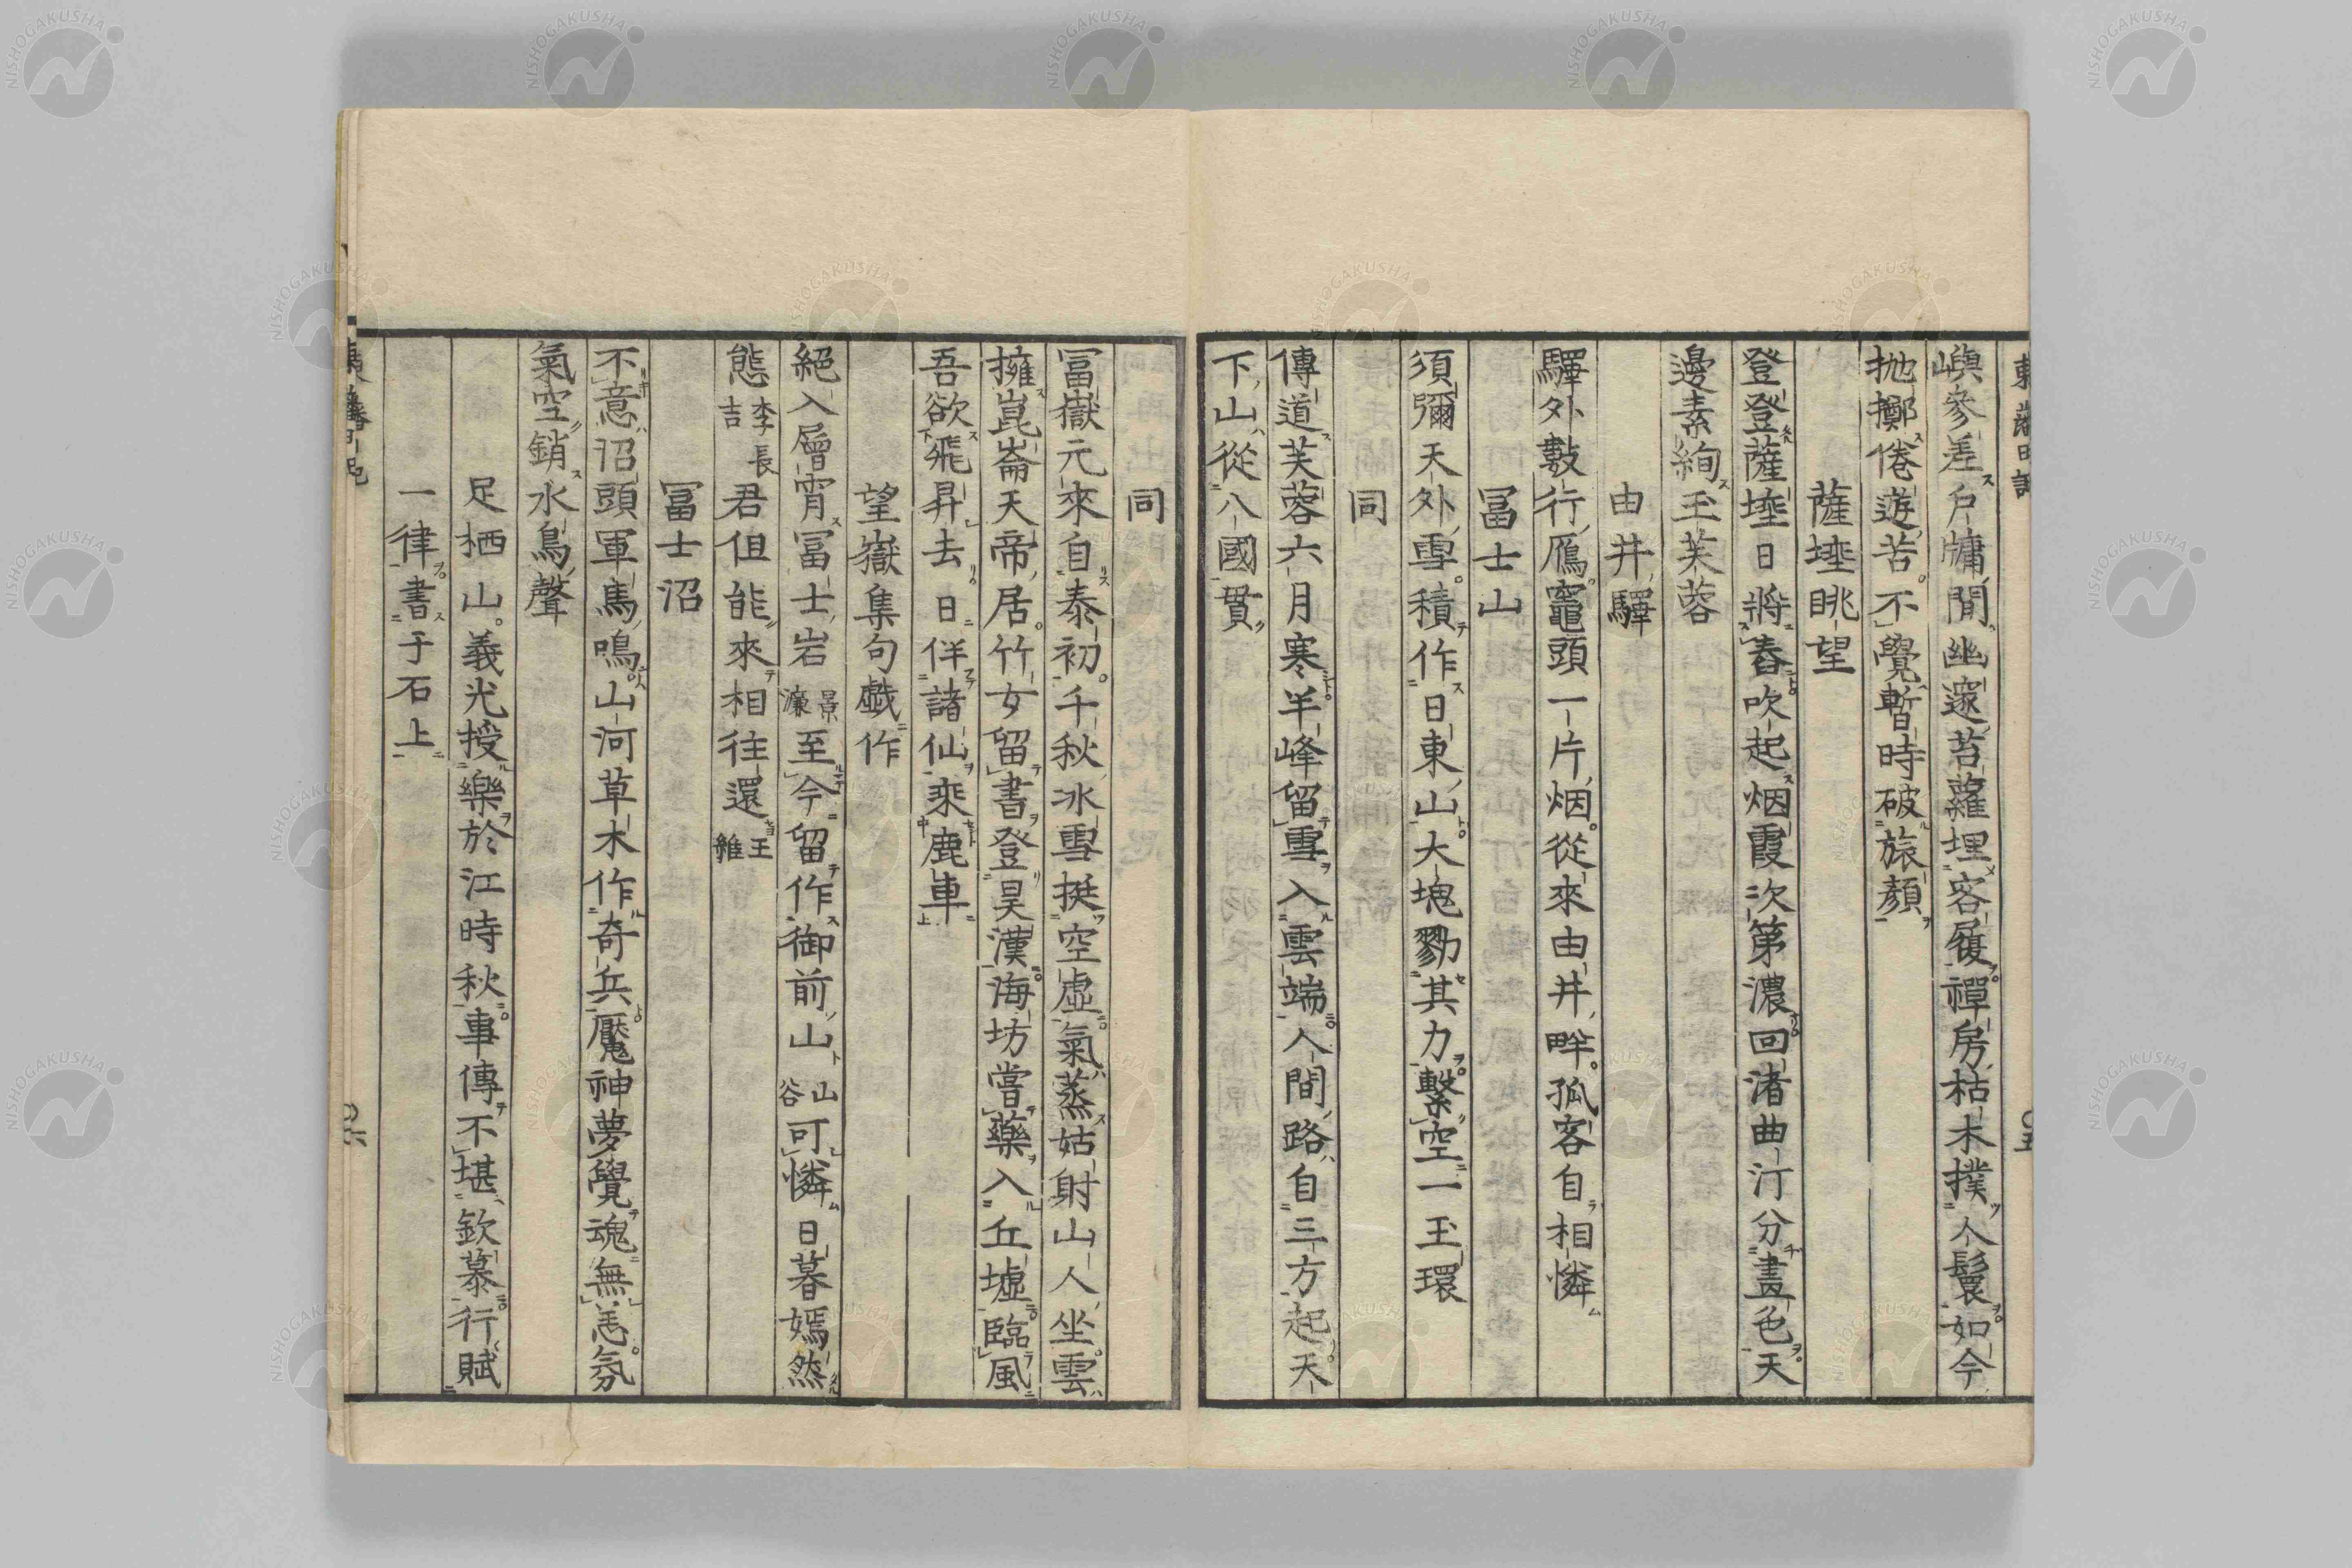 嶼參差戸牗閒幽邃苔蘿埋客履禪房枯木撲人鬟如今
抛擲倦遊苦不覺暫時破旅顏
薩埵眺望
登登薩埵日將舂吹起烟霞次第濃回渚曲汀分畫色天
邊素絢玉芙蓉
由井驛
驛外數行鴈竈頭一片烟從來由井畔孤客自相憐
冨士山
須彌天外雪積作日東山大塊勠其力繫空一玉環
同
傳道芙蓉六月寒半峰留雪入雲端人間路自三方起天
下山從八國貫
同
冨嶽元來自泰初千秋冰雪挺空虛氣蒸姑射山人坐雲
擁崑崙天帝居竹女留書登昊漢海坊嘗藥入丘墟臨風
吾欲飛昇去日伴諸仙乘鹿車
望嶽集句戯作
絕入層宵冨士岩景濂至今留作御前山山谷可憐日暮嫣然
態李長吉君但能來相往還王維
冨士沼
不意沼頭軍馬鳴山河草木作奇兵魘神夢覺魂無恙氛
氣空銷水鳥聲
足栖山義光授樂於江時秋事傳不堪欽慕行賦
一律書于石上
NISHOGAKUSHA